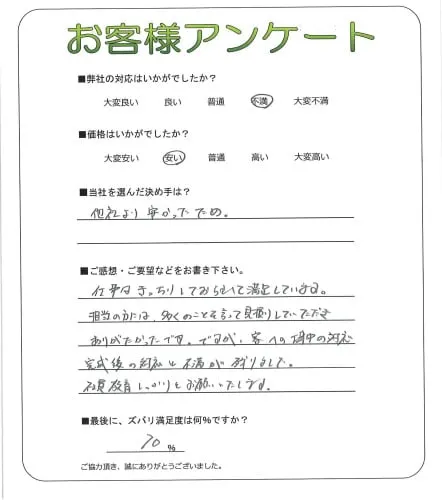 お客様アンケート
■弊社の対応はいかがでしたか？
大変良い 良い 普通 不満 大変不満
■価格はいかがでしたか？
大変安い 安い 普通 高い 大変高い
■当社を選んだ決め手は？
他社より安かったため。
■ご感想・ご要望などをお書き下さい。
仕事はきっちりしておられて満足しています。
担当の方には、多くのことを言って見積りしていただき
ありがたかったです。ですが、客への途中の対応
完成後の対応と不満が残りました。
社員教育しっかりとお願いいたします。
■最後に、ズバリ満足度は何％ですか？
70 ％
ご協力頂き、誠にありがとうございました。